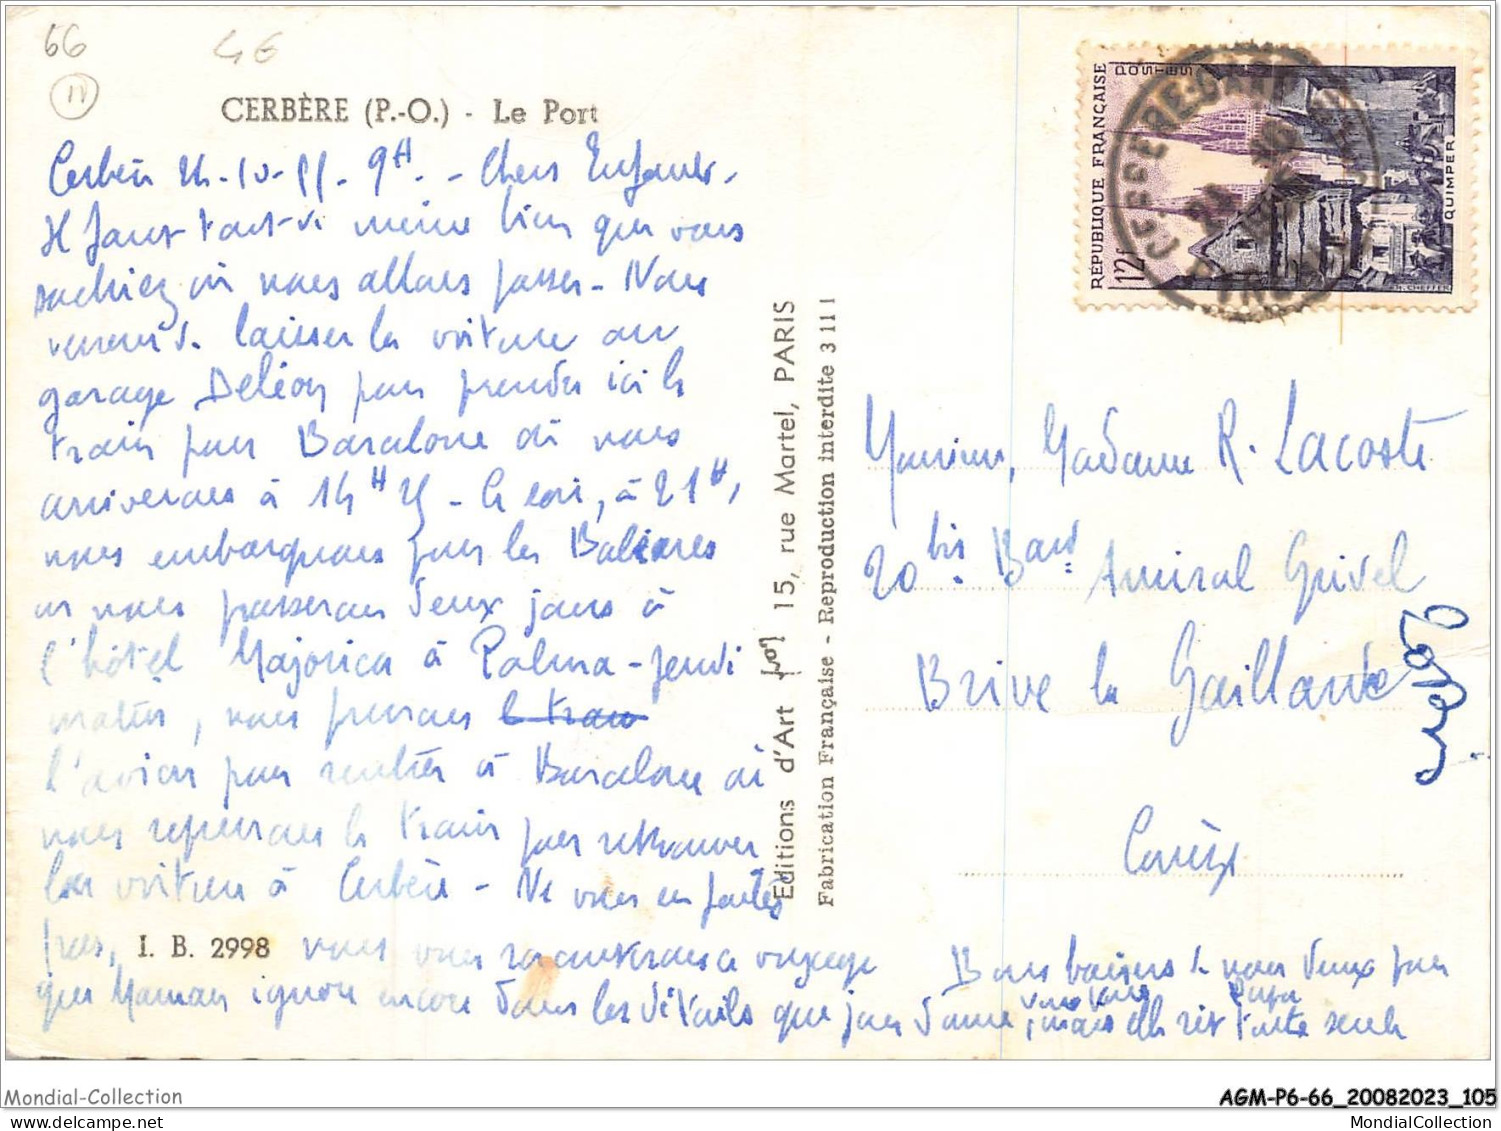 66
4€
11
CERBÈRE (P.-O.) - Le Port
Cerbère 24-10-55. 9H. - Chers Enfants,
Il faut tout de même bien que vous
sachiez où nous allons passer - Nous
venons de laisser la voiture au
garage Deléon pour prendre ici le
train pour Barcelone où nous
arriverons à 14H25 - Le soir, à 21H,
nous embarquons pour les Baléares
où nous passerons deux jours à
l'hôtel Majorica à Palma - Jeudi
matin, nous prenons le train
l'avion pour rentrer à Barcelone où
nous reprenons le train pour retrouver
la voiture à Cerbère - Ne vous en faites
pas, nous vous raconterons ce voyage
que Maman ignore encore dans les détails que j'en donne, mais elle rit toute seule
I. B. 2998
Bons baisers de nous deux pour
vous tous Papa
Editions d'Art 15, rue Martel, PARIS
Fabrication Française - Reproduction interdite 3 111
RÉPUBLIQUE FRANÇAISE
POSTES
12f
QUIMPER
H. CHEFFER
CERBERE-GARE
Monsieur, Madame R. Lacoste
20 bis Bard Amiral Grivel
Brive la Gaillarde
Corrèze
Mondial-Collection
AGM-P6-66_20082023_105
MondialCollection.com